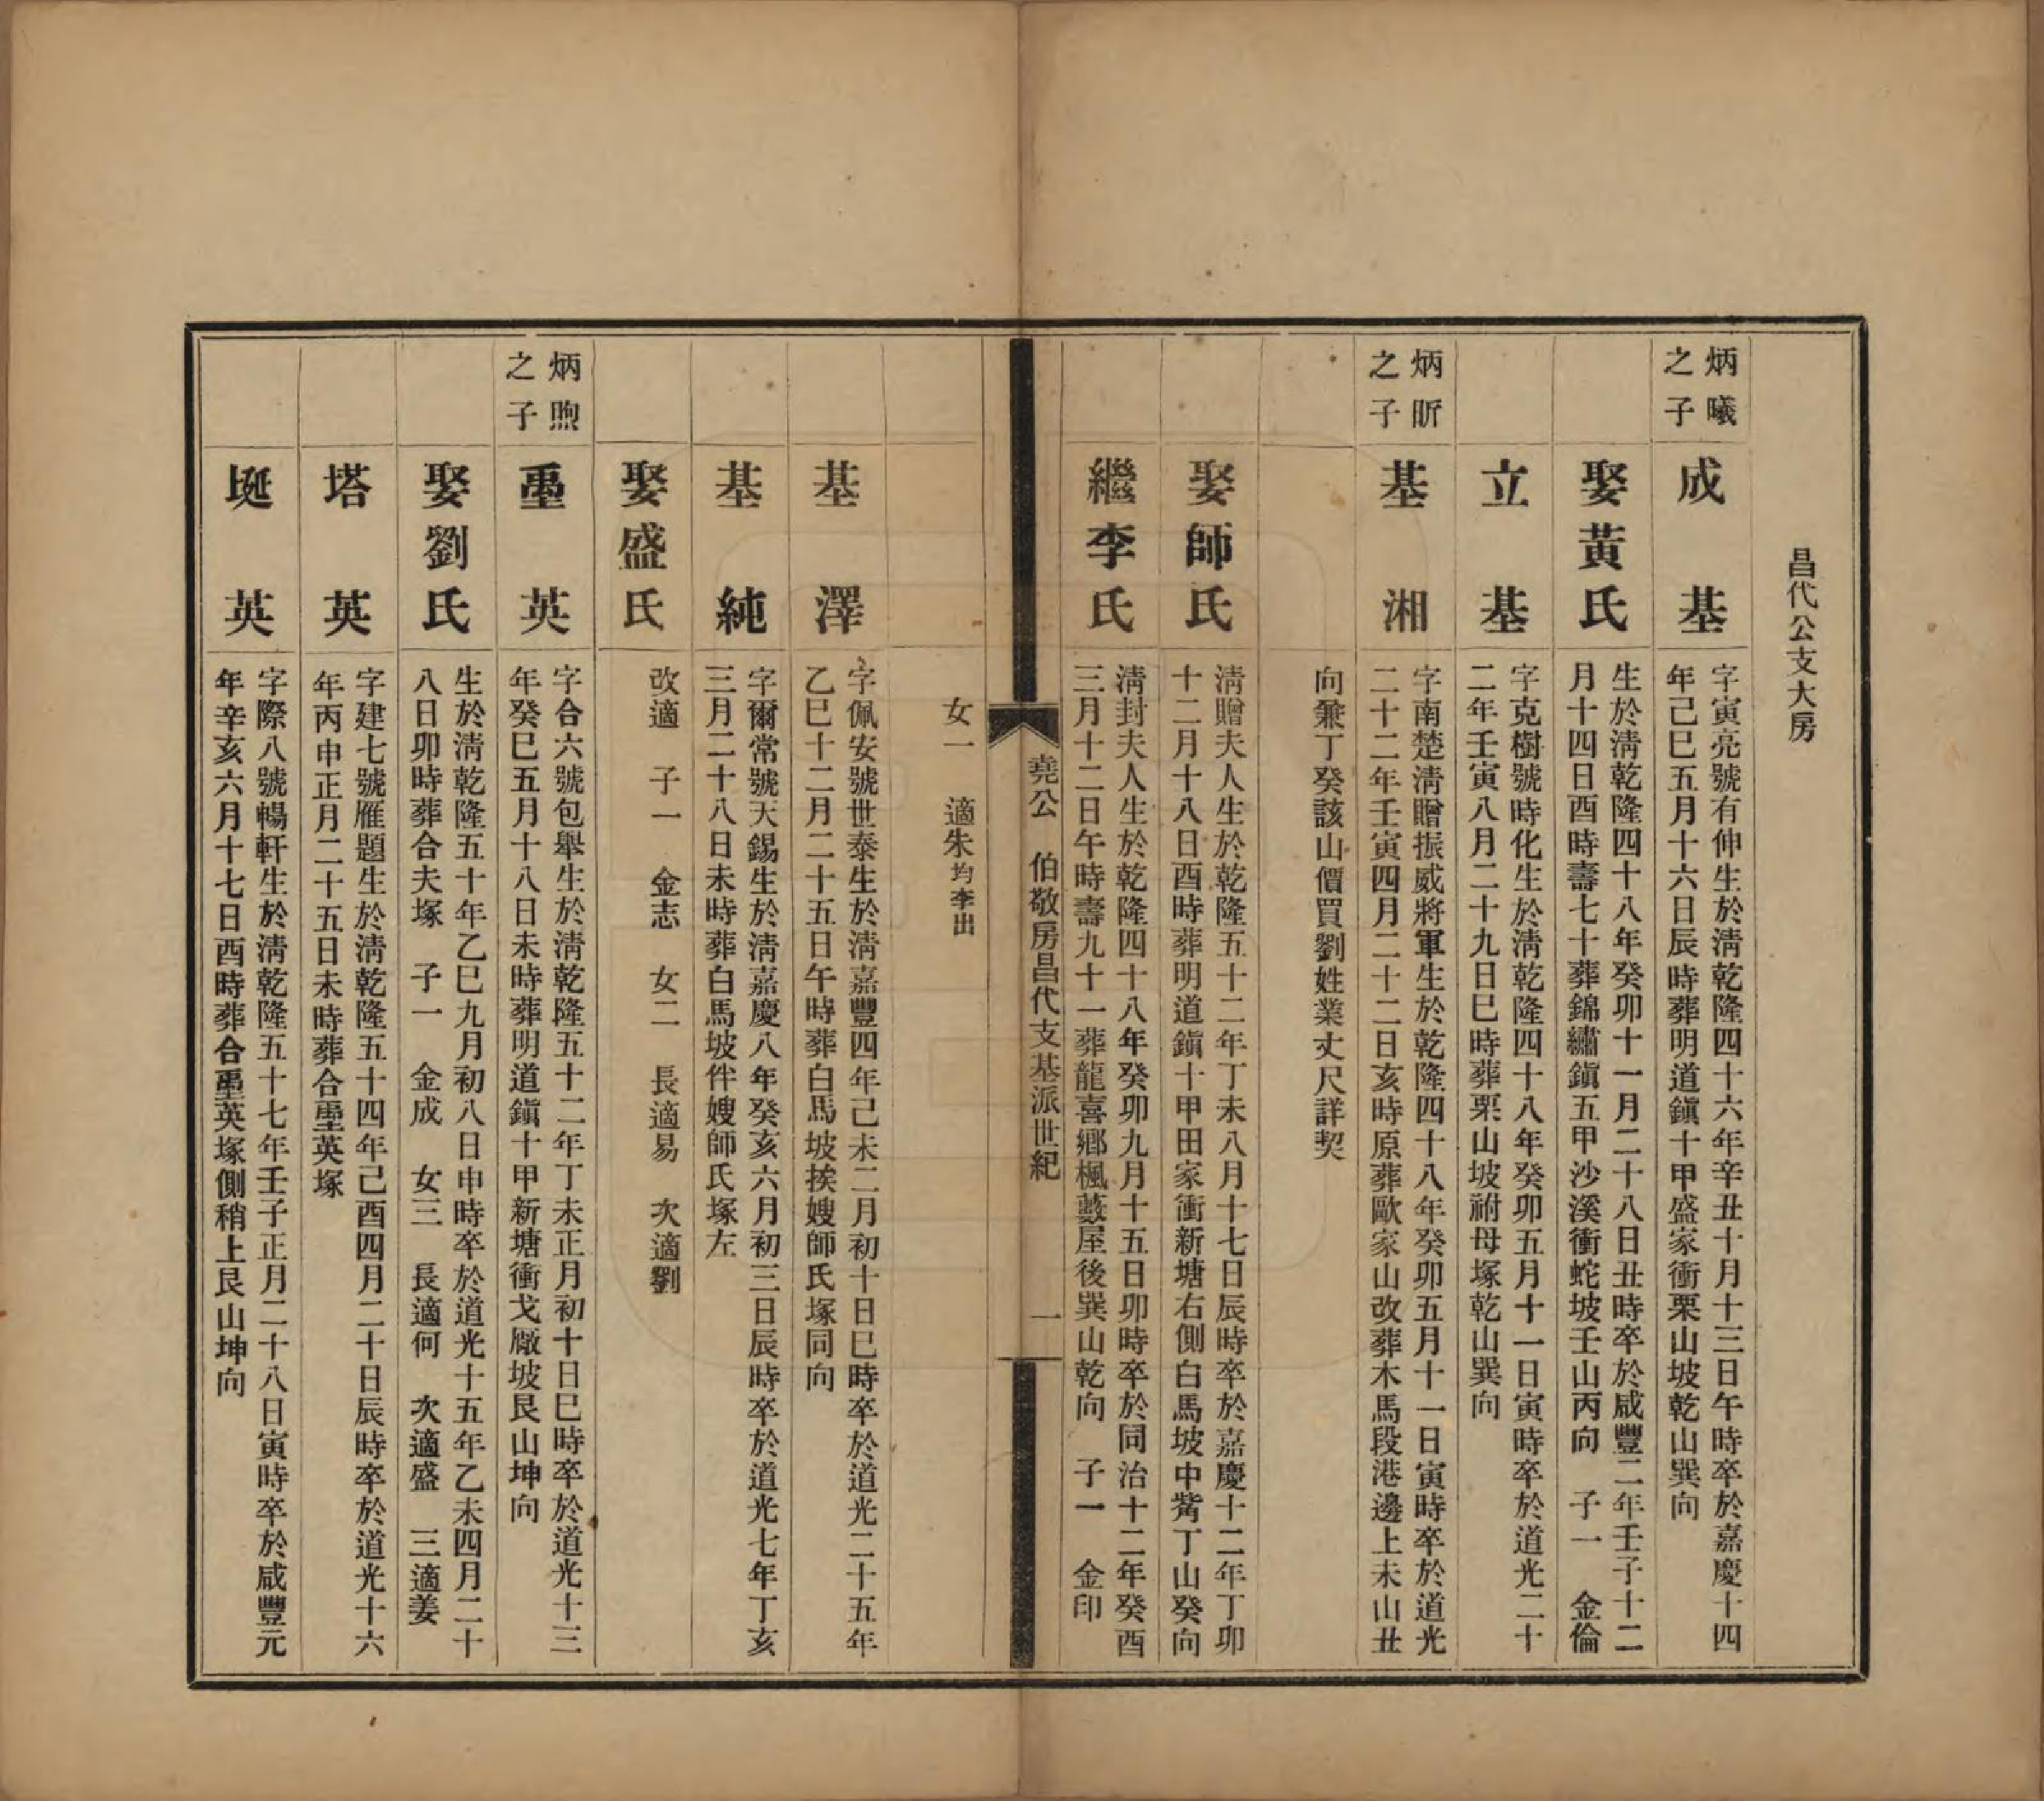 昌代公支大房
炳曦
之子
成基
字寅亮號有伸生於淸乾隆四十六年辛丑十月十三日午時卒於嘉慶十四
年己巳五月十六日辰時葬明道鎭十甲盛家衝栗山坡乾山巽向
娶黃氏
生於淸乾隆四十八年癸卯十一月二十八日丑時卒於咸豐二年壬子十二
月十四日酉時壽七十葬錦繡鎭五甲沙溪衝蛇坡壬山丙向 子一 金倫
立基
字克樹號時化生於淸乾隆四十八年癸卯五月十一日寅時卒於道光二十
二年壬寅八月二十九日巳時葬栗山坡祔母塚乾山巽向
炳昕
之子
基湘
字南楚淸贈振威將軍生於乾隆四十八年癸卯五月十一日寅時卒於道光
二十二年壬寅四月二十二日亥時原葬歐家山改葬木馬段港邊上未山丑
向兼丁癸該山價買劉姓業丈尺詳契
娶師氏
淸贈夫人生於乾隆五十二年丁未八月十七日辰時卒於嘉慶十二年丁卯
十二月十八日酉時葬明道鎭十甲田家衝新塘右側白馬坡中觜丁山癸向
繼李氏
淸封夫人生於乾隆四十八年癸卯九月十五日卯時卒於同治十二年癸酉
三月十二日午時壽九十一葬龍喜鄉楓藪屋後巽山乾向 子一 金印
堯公 伯敬房昌代支基派世紀 一
女一 適朱均李出
基澤
字佩安號世泰生於淸嘉豐四年己未二月初十日巳時卒於道光二十五年
乙巳十二月二十五日午時葬白馬坡挨嫂師氏塚同向
基純
字爾常號天錫生於淸嘉慶八年癸亥六月初三日辰時卒於道光七年丁亥
三月二十八日未時葬白馬坡伴嫂師氏塚左
娶盛氏
改適 子一 金志 女二 長適易 次適劉
炳煦
之子
堊英
字合六號包舉生於淸乾隆五十二年丁未正月初十日巳時卒於道光十三
年癸巳五月十八日未時葬明道鎭十甲新塘衝戈厰坡艮山坤向
娶劉氏
生於淸乾隆五十年乙巳九月初八日申時卒於道光十五年乙未四月二十
八日卯時葬合夫塚 子一 金成 女三 長適何 次適盛 三適姜
塔英
字建七號雁題生於淸乾隆五十四年己酉四月二十日辰時卒於道光十六
年丙申正月二十五日未時葬合堊英塚
埏英
字際八號暢軒生於淸乾隆五十七年壬子正月二十八日寅時卒於咸豐元
年辛亥六月十七日酉時葬合堊英塚側稍上艮山坤向